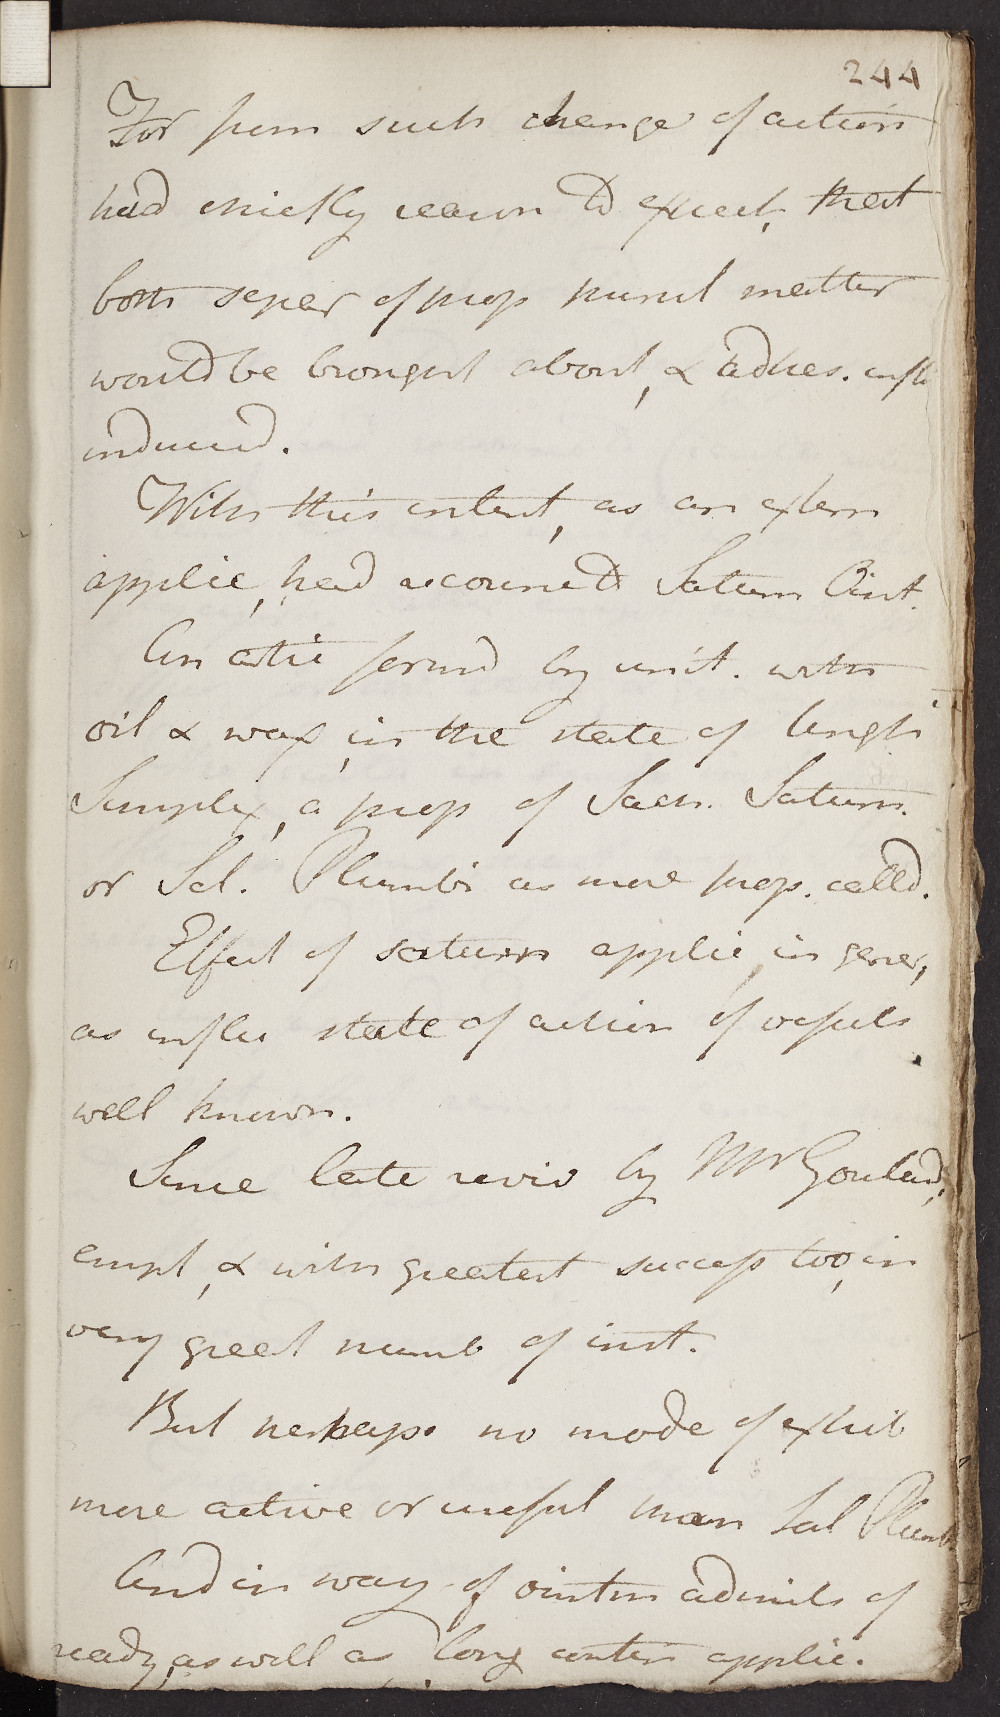 244
For from such change of action
had chiefly reason to expect, that
both separ of prop purul matter
would be brought about, & adhes. infl
induced.
With this intent, as an extern
applic, had recourse to Saturn Oint.
An artic form'd by unit. with
oil & wax, in the state of Ungt
Simplex, a prep of Sacch. Saturn.
or Sal. Plumbi as more prop. called.
Effect of saturn applic, in gener,
as influ state of action of vessels
well known.
Since late reviv by Mr Goulard,
empl, & with greatest success too, in
very great numb of inst.
But perhaps no mode of exhib
more active or useful than Sal Plumb
And in way of ointm admits of
ready, as well as long contin applic.